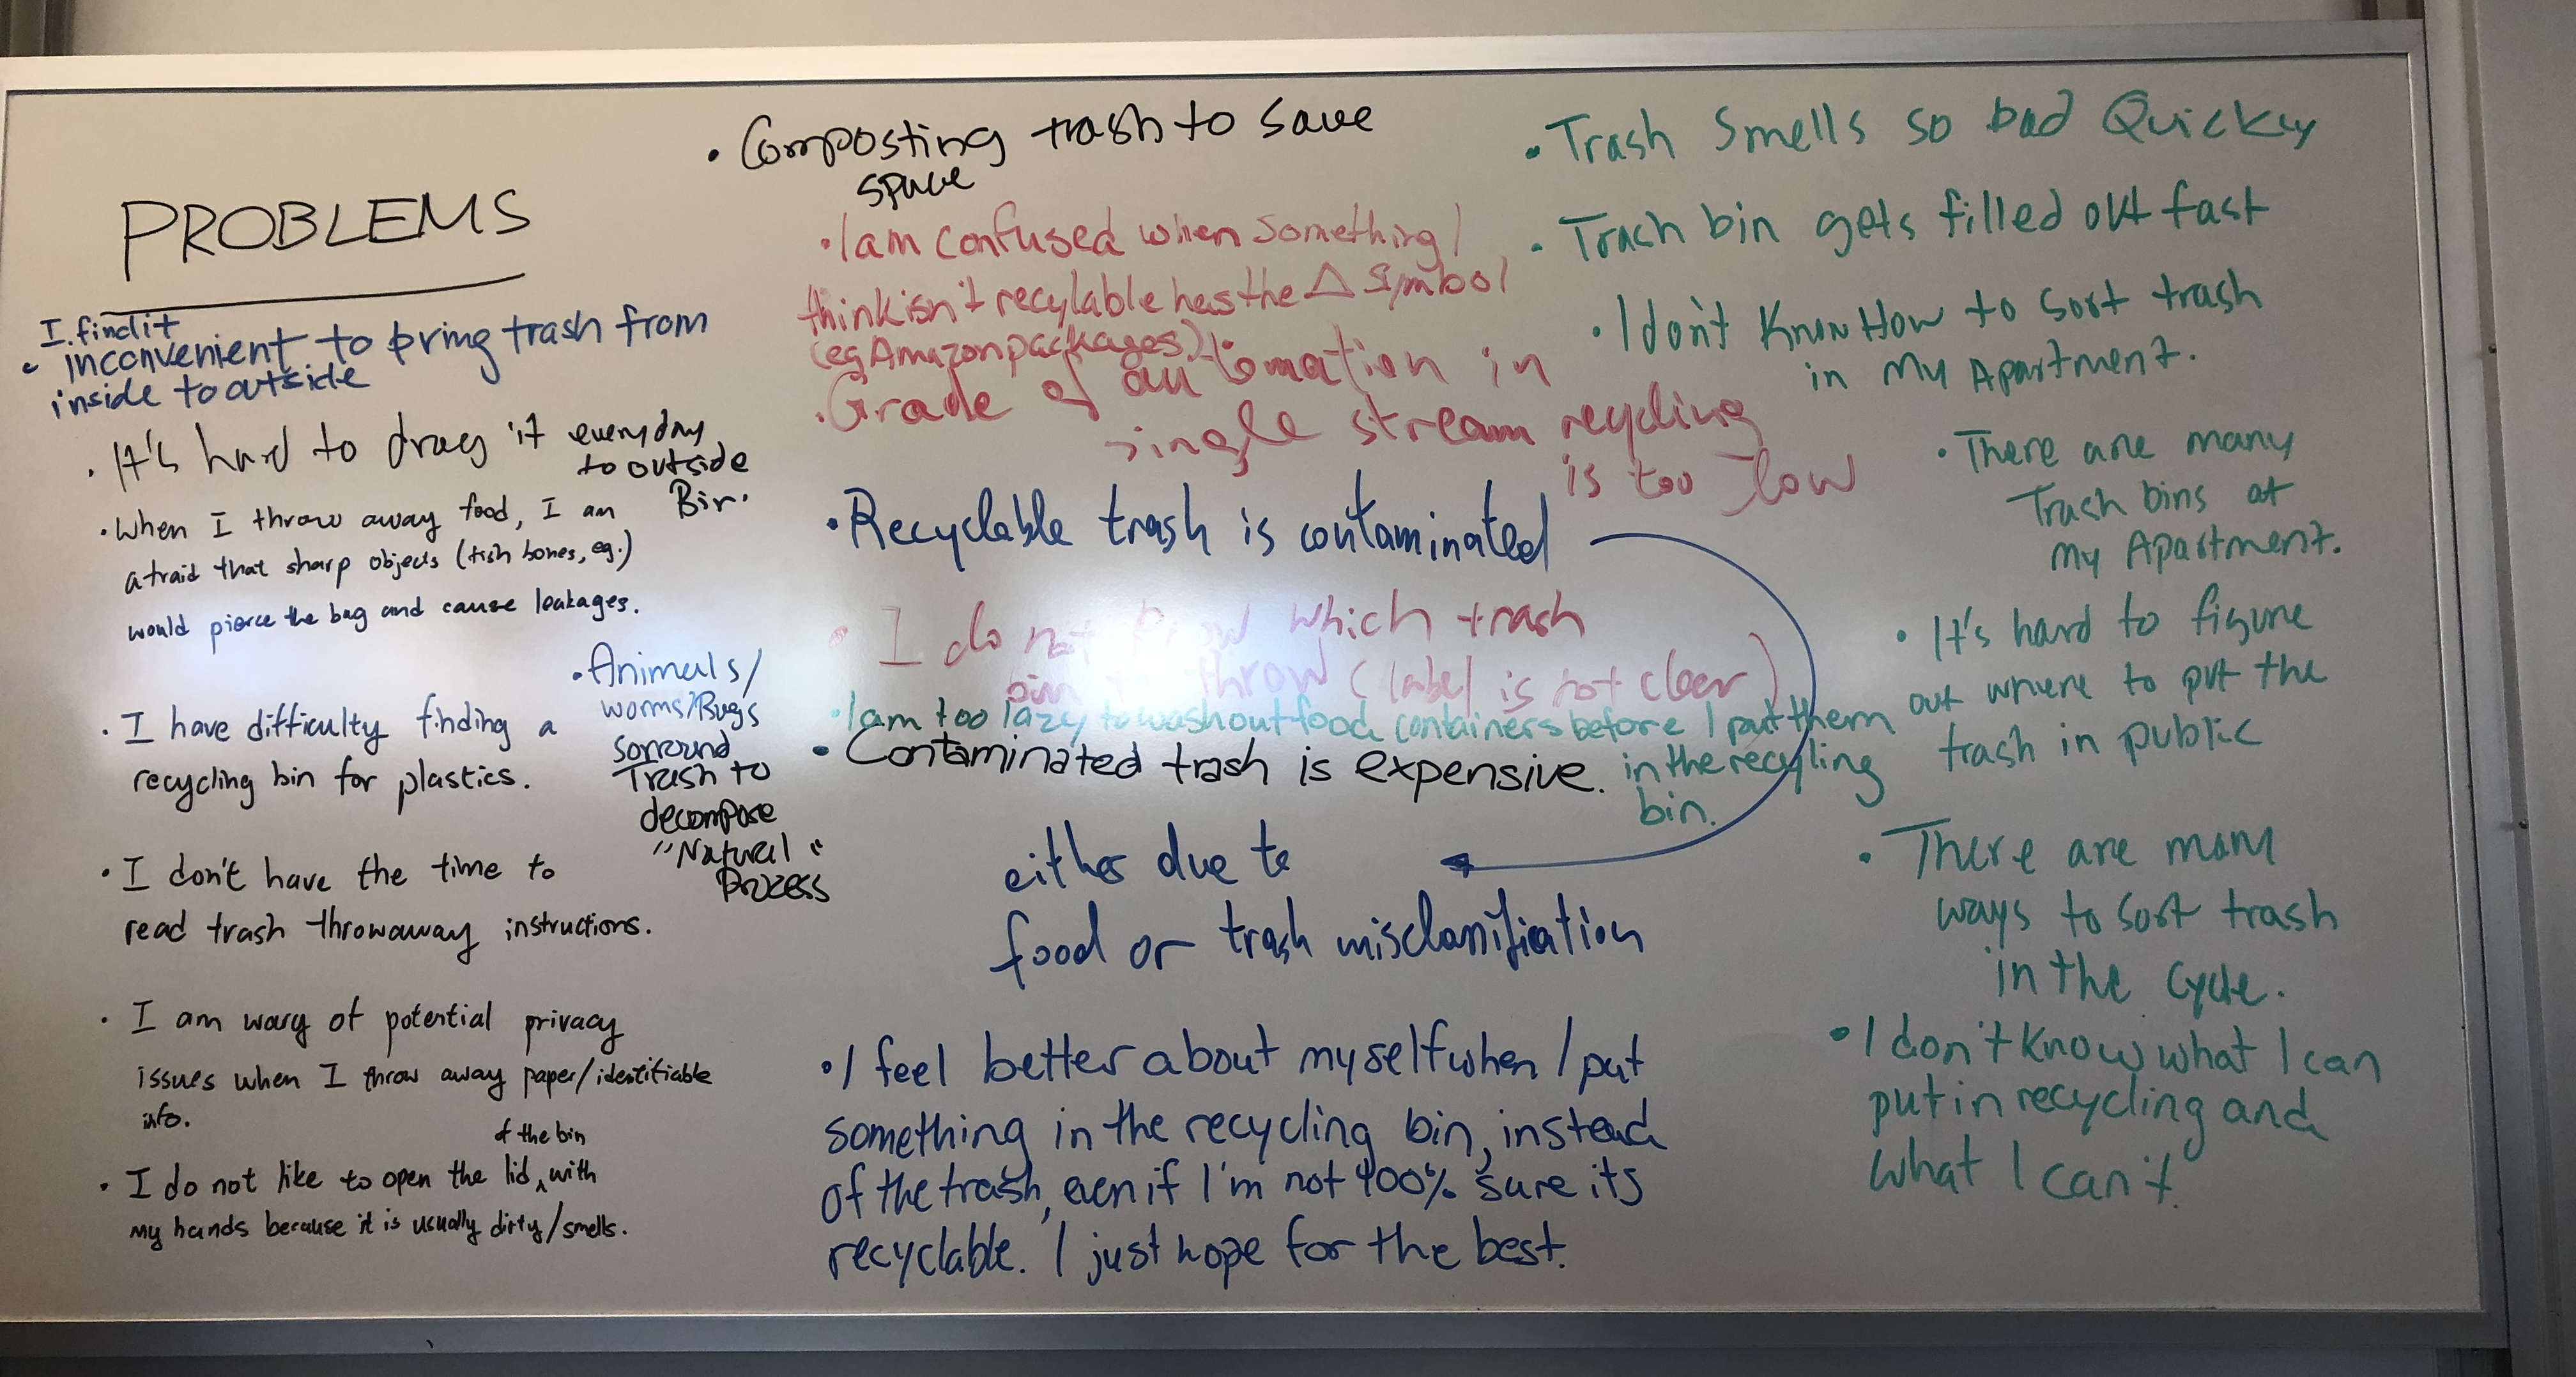 PROBLEMS
I find it
• inconvenient to bring trash from
inside to outside
• It's hard to drag it everyday
to outside
Bin.
• When I throw away food, I am
afraid that sharp objects (fish bones, eg.)
would pierce the bag and cause leakages.
• Animals/
worms/Bugs
sorround
Trash to
decompose
"Natural"
Process
• I have difficulty finding a
recycling bin for plastics.
• I don't have the time to
read trash throwaway instructions.
• I am wary of potential privacy
issues when I throw away paper/identifiable
info.
of the bin
• I do not like to open the lid ^ with
my hands because it is usually dirty/smells.
• Composting trash to save
space
• I am confused when something I
think isn't recylable has the △ symbol
(eg Amazon packages).
• Grade of automation in
single stream recycling
is too low
• Recyclable trash is contaminated
• I do not know which trash
bin to throw (label is not clear)
• I am too lazy to wash out food containers before I put them
in the recycling
bin.
• Contaminated trash is expensive.
either due to
food or trash misclassification
• I feel better about myself when I put
something in the recycling bin, instead
of the trash, even if I'm not 100% sure its
recyclable. I just hope for the best.
• Trash Smells so bad Quickly
• Trach bin gets filled out fast
• I don't Know How to Sort trash
in My Apartment.
• There are many
Trash bins at
My Apartment.
• It's hard to figure
out where to put the
trash in public
• There are many
ways to Sort trash
in the Cycle.
• I don't know what I can
put in recycling and
what I can't.